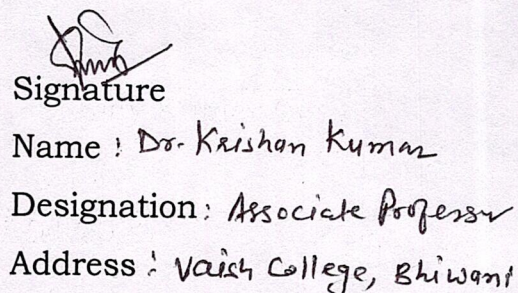 Signature
Name : Dr. Krishan Kumar
Designation : Associate Professor
Address : Vaish College, Bhiwani